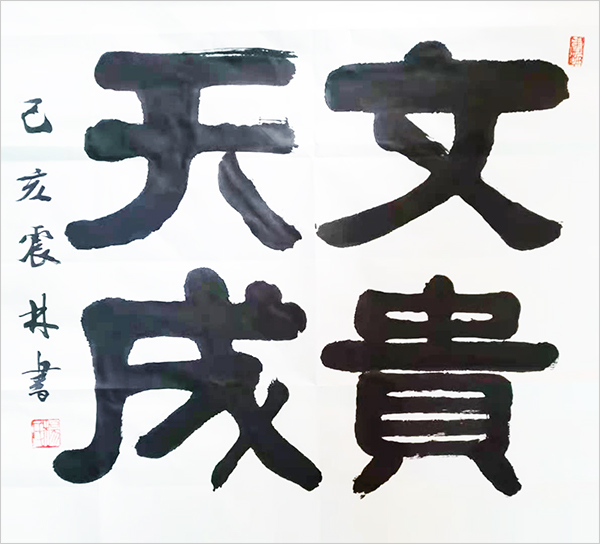 文貴
天成
己亥震林書